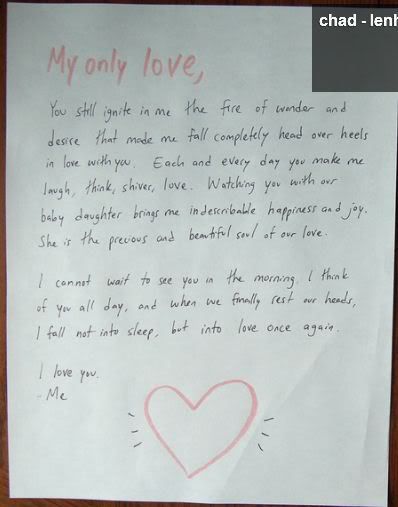 chad - lenh
My only love,
You still ignite in me the fire of wonder and
desire that made me fall completely head over heels
in love with you. Each and every day you make me
laugh, think, shiver, love. Watching you with our
baby daughter brings me indescribable happiness and joy.
She is the precious and beautiful soul of our love.
I cannot wait to see you in the morning. I think
of you all day, and when we finally rest our heads,
I fall not into sleep, but into love once again.
I love you.
- Me